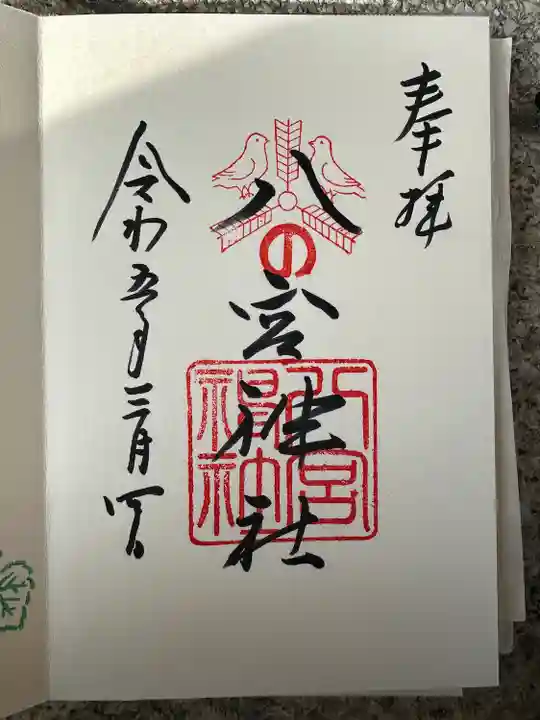 奉拝
八の宮神社
八宮神社
令和五年三月四日